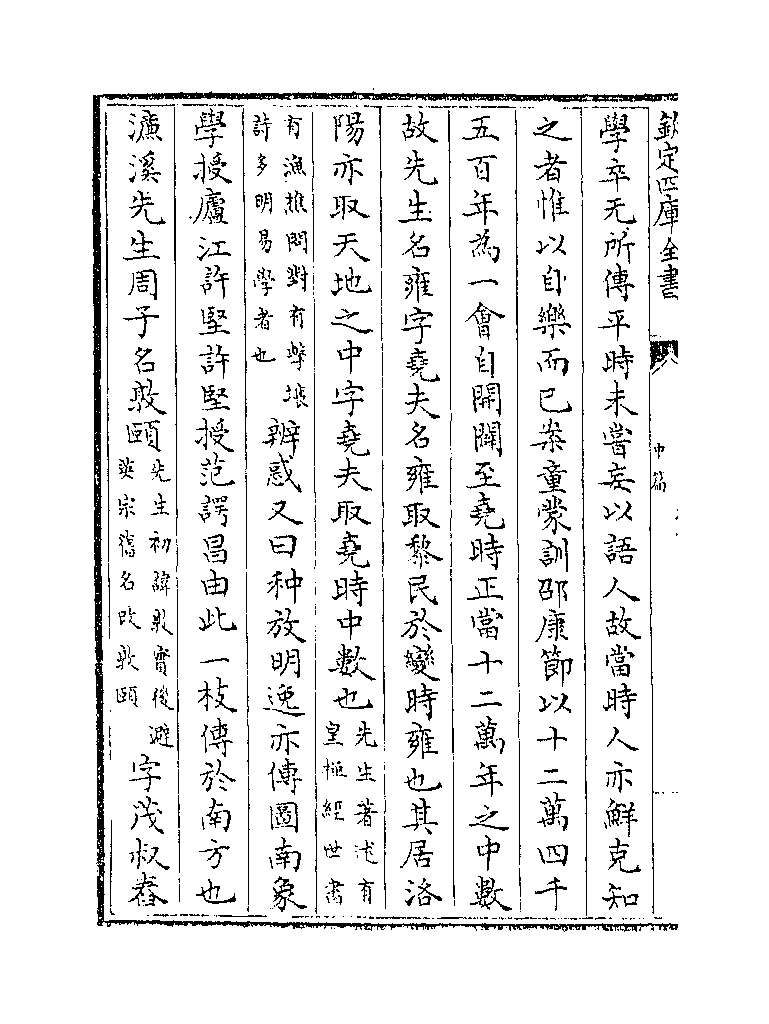 欽定四庫全書
中篇
學卒无所傳平時未嘗妄以語人故當時人亦鮮克知
之者惟以自樂而已案童蒙訓邵康節以十二萬四千
五百年為一會自開闢至堯時正當十二萬年之中數
故先生名雍字堯夫名雍取黎民於變時雍也其居洛
陽亦取天地之中字堯夫取堯時中數也先生著述有
皇極經世書
有漁樵問對有擊壤
詩多明易學者也辨惑又曰种放明逸亦傳圖南象
學授廬江許堅許堅授范諤昌由此一枝傳於南方也
濂溪先生周子名敦頤先生初諱敦實後避
英宗舊名改敦頤字茂叔舂